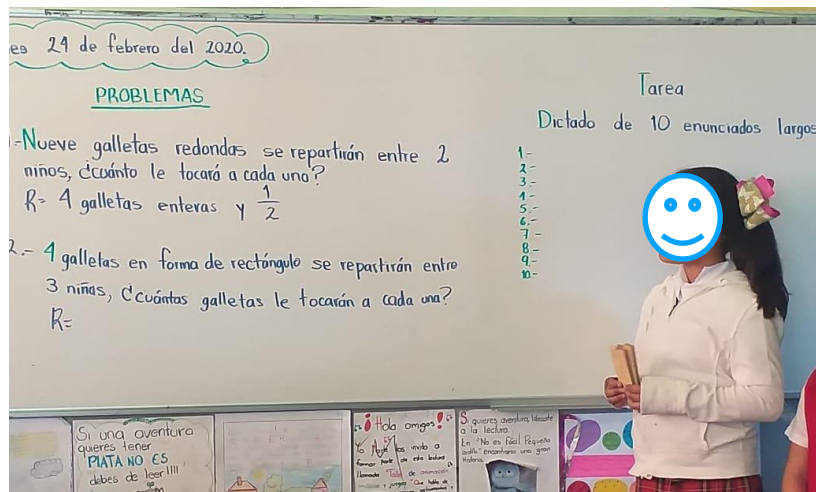 es 24 de febrero del 2020.
PROBLEMAS
1.-Nueve galletas redondas se repartirán entre 2
niños, ¿cuánto le tocará a cada uno?
R= 4 galletas enteras y 1/2
2.- 4 galletas en forma de rectángulo se repartirán entre
3 niñas, ¿cuántas galletas le tocarán a cada una?
R=
Tarea
Dictado de 10 enunciados largos
1-
2-
3.-
4.-
5.-
6.-
7-
8.-
9.-
10-
Si una aventura
quieres tener
"PIATA NO ES
debes de leer!!!!
también
¡Hola amigos!
Yo los invito a
formar parte de esta lectura
llamada de animación
y juegos "Que habla de
Si quieres aventura, lánzate
a la lectura.
En "No es fácil Pequeña
ardilla" encontramos una gran
historia.